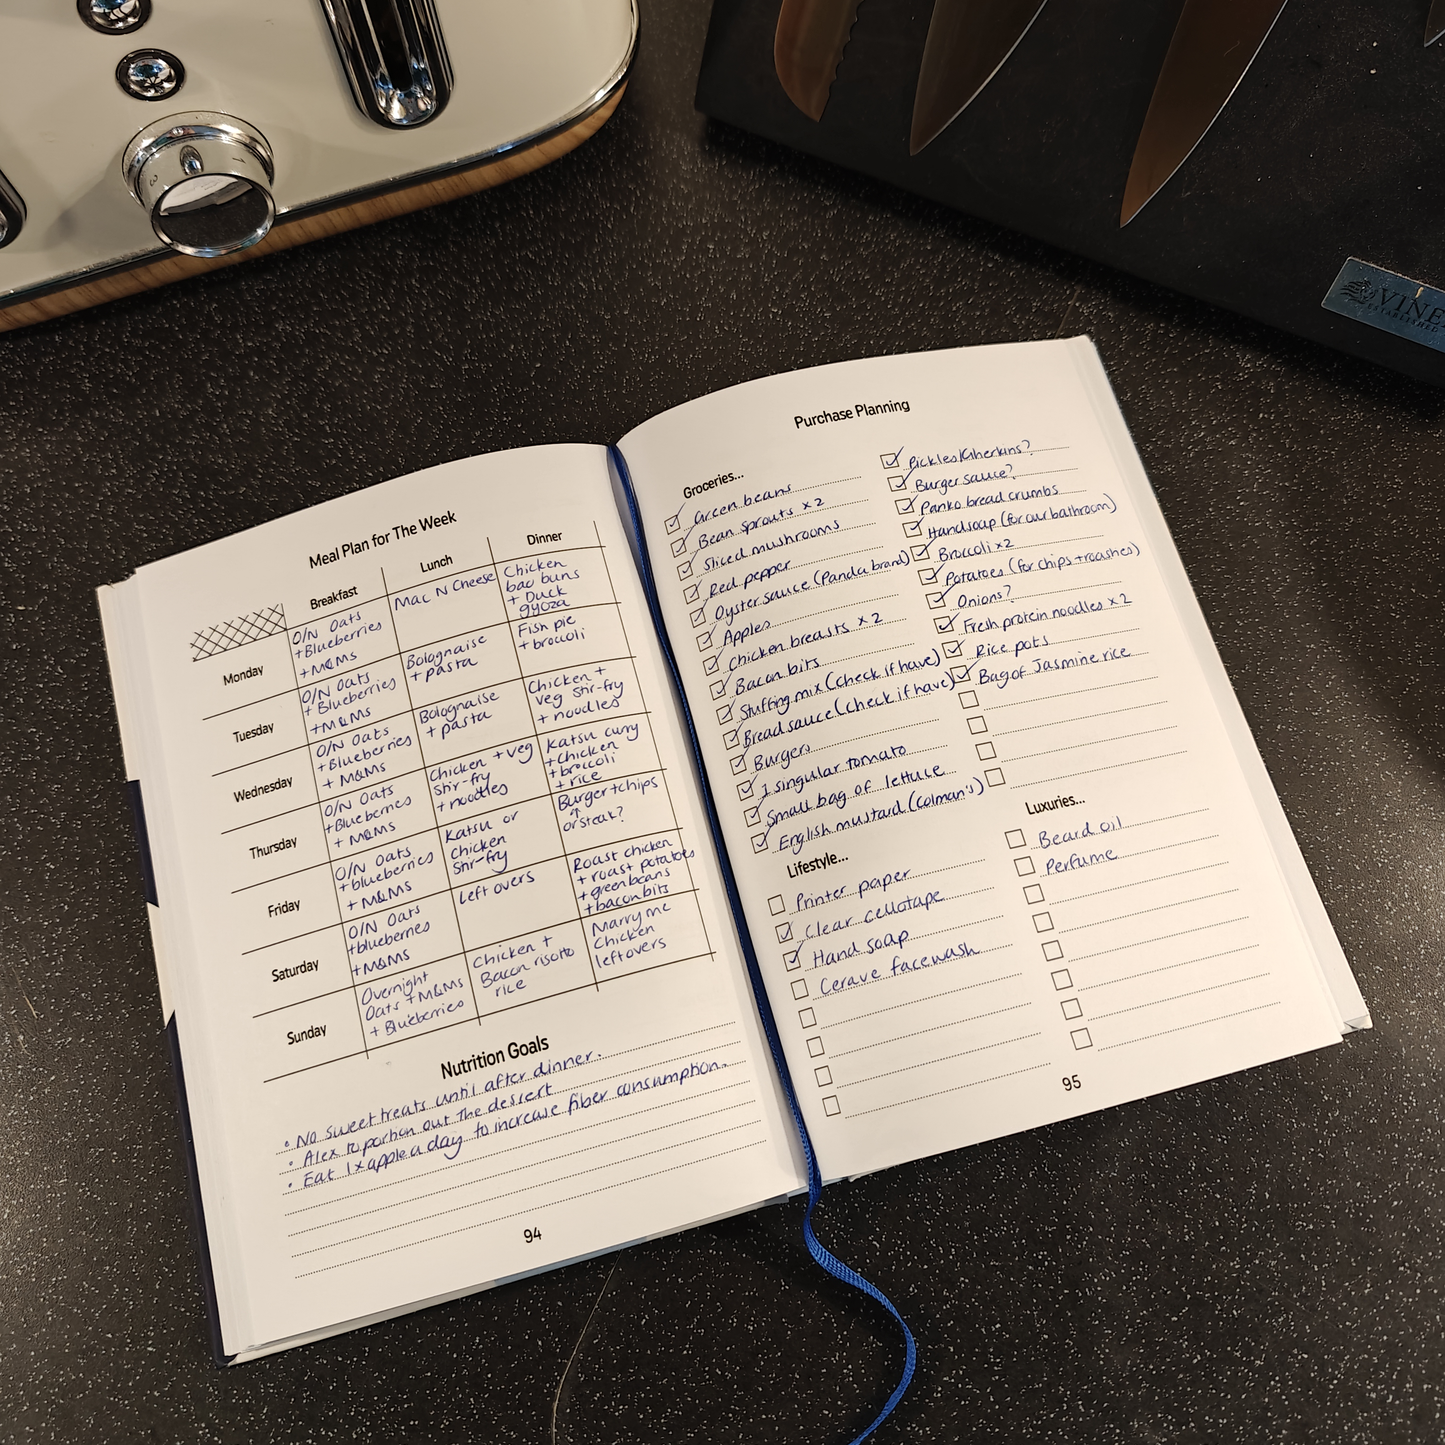 1
3
VINE
ESTABLISHED
Meal Plan for The Week
Breakfast
Lunch
Dinner
Monday
O/N Oats
+Blueberries
+M&Ms
Mac N Cheese
Chicken
bao buns
+ Duck
gyoza
Tuesday
O/N Oats
+ Blueberries
+M&Ms
Bolognaise
+ pasta
Fish pie
+ broccoli
Wednesday
O/N Oats
+Blueberries
+ M&Ms
Bolognaise
+ pasta
Chicken +
veg stir-fry
+ noodles
Thursday
O/N Oats
+Blueberries
+ M&Ms
Chicken + veg
Stir-fry
+ noodles
Katsu curry
+chicken
+broccoli
+rice
Friday
O/N Oats
+blueberries
+ M&Ms
Katsu or
chicken
Stir-fry
Burger+chips
↑
or steak?
Saturday
O/N Oats
+blueberries
+M&Ms
Left overs
Roast chicken
+ roast potatoes
+greenbeans
+baconbits
Sunday
Overnight
Oats +M&Ms
+ Blueberries
Chicken +
Bacon risotto
rice
Marry me
Chicken
leftovers
Nutrition Goals
• No sweet treats until after dinner.
• Alex to portion out the dessert
• Eat 1x apple a day to increase fiber consumption.
94
Purchase Planning
Groceries...
Green beans
Bean sprouts x2
Sliced mushrooms
Red pepper
Oyster sauce (Panda brand)
Apples
Chicken breasts x 2
Bacon bits
Stuffing mix (check if have)
Bread sauce (check if have)
Burgers
1 singular tomato
Small bag of lettuce
English mustard (Colman's)
Pickles/Gherkins?
Burger sauce?
Panko bread crumbs
Handsoap (for our bathroom)
Broccoli x2
Potatoes (for chips + roashes)
Onions?
Fresh protein noodles x2
Rice pots
Bag of Jasmine rice
Lifestyle...
Printer paper
Clear cellotape
Hand soap
Cerave facewash
Luxuries...
Beard oil
Perfume
95